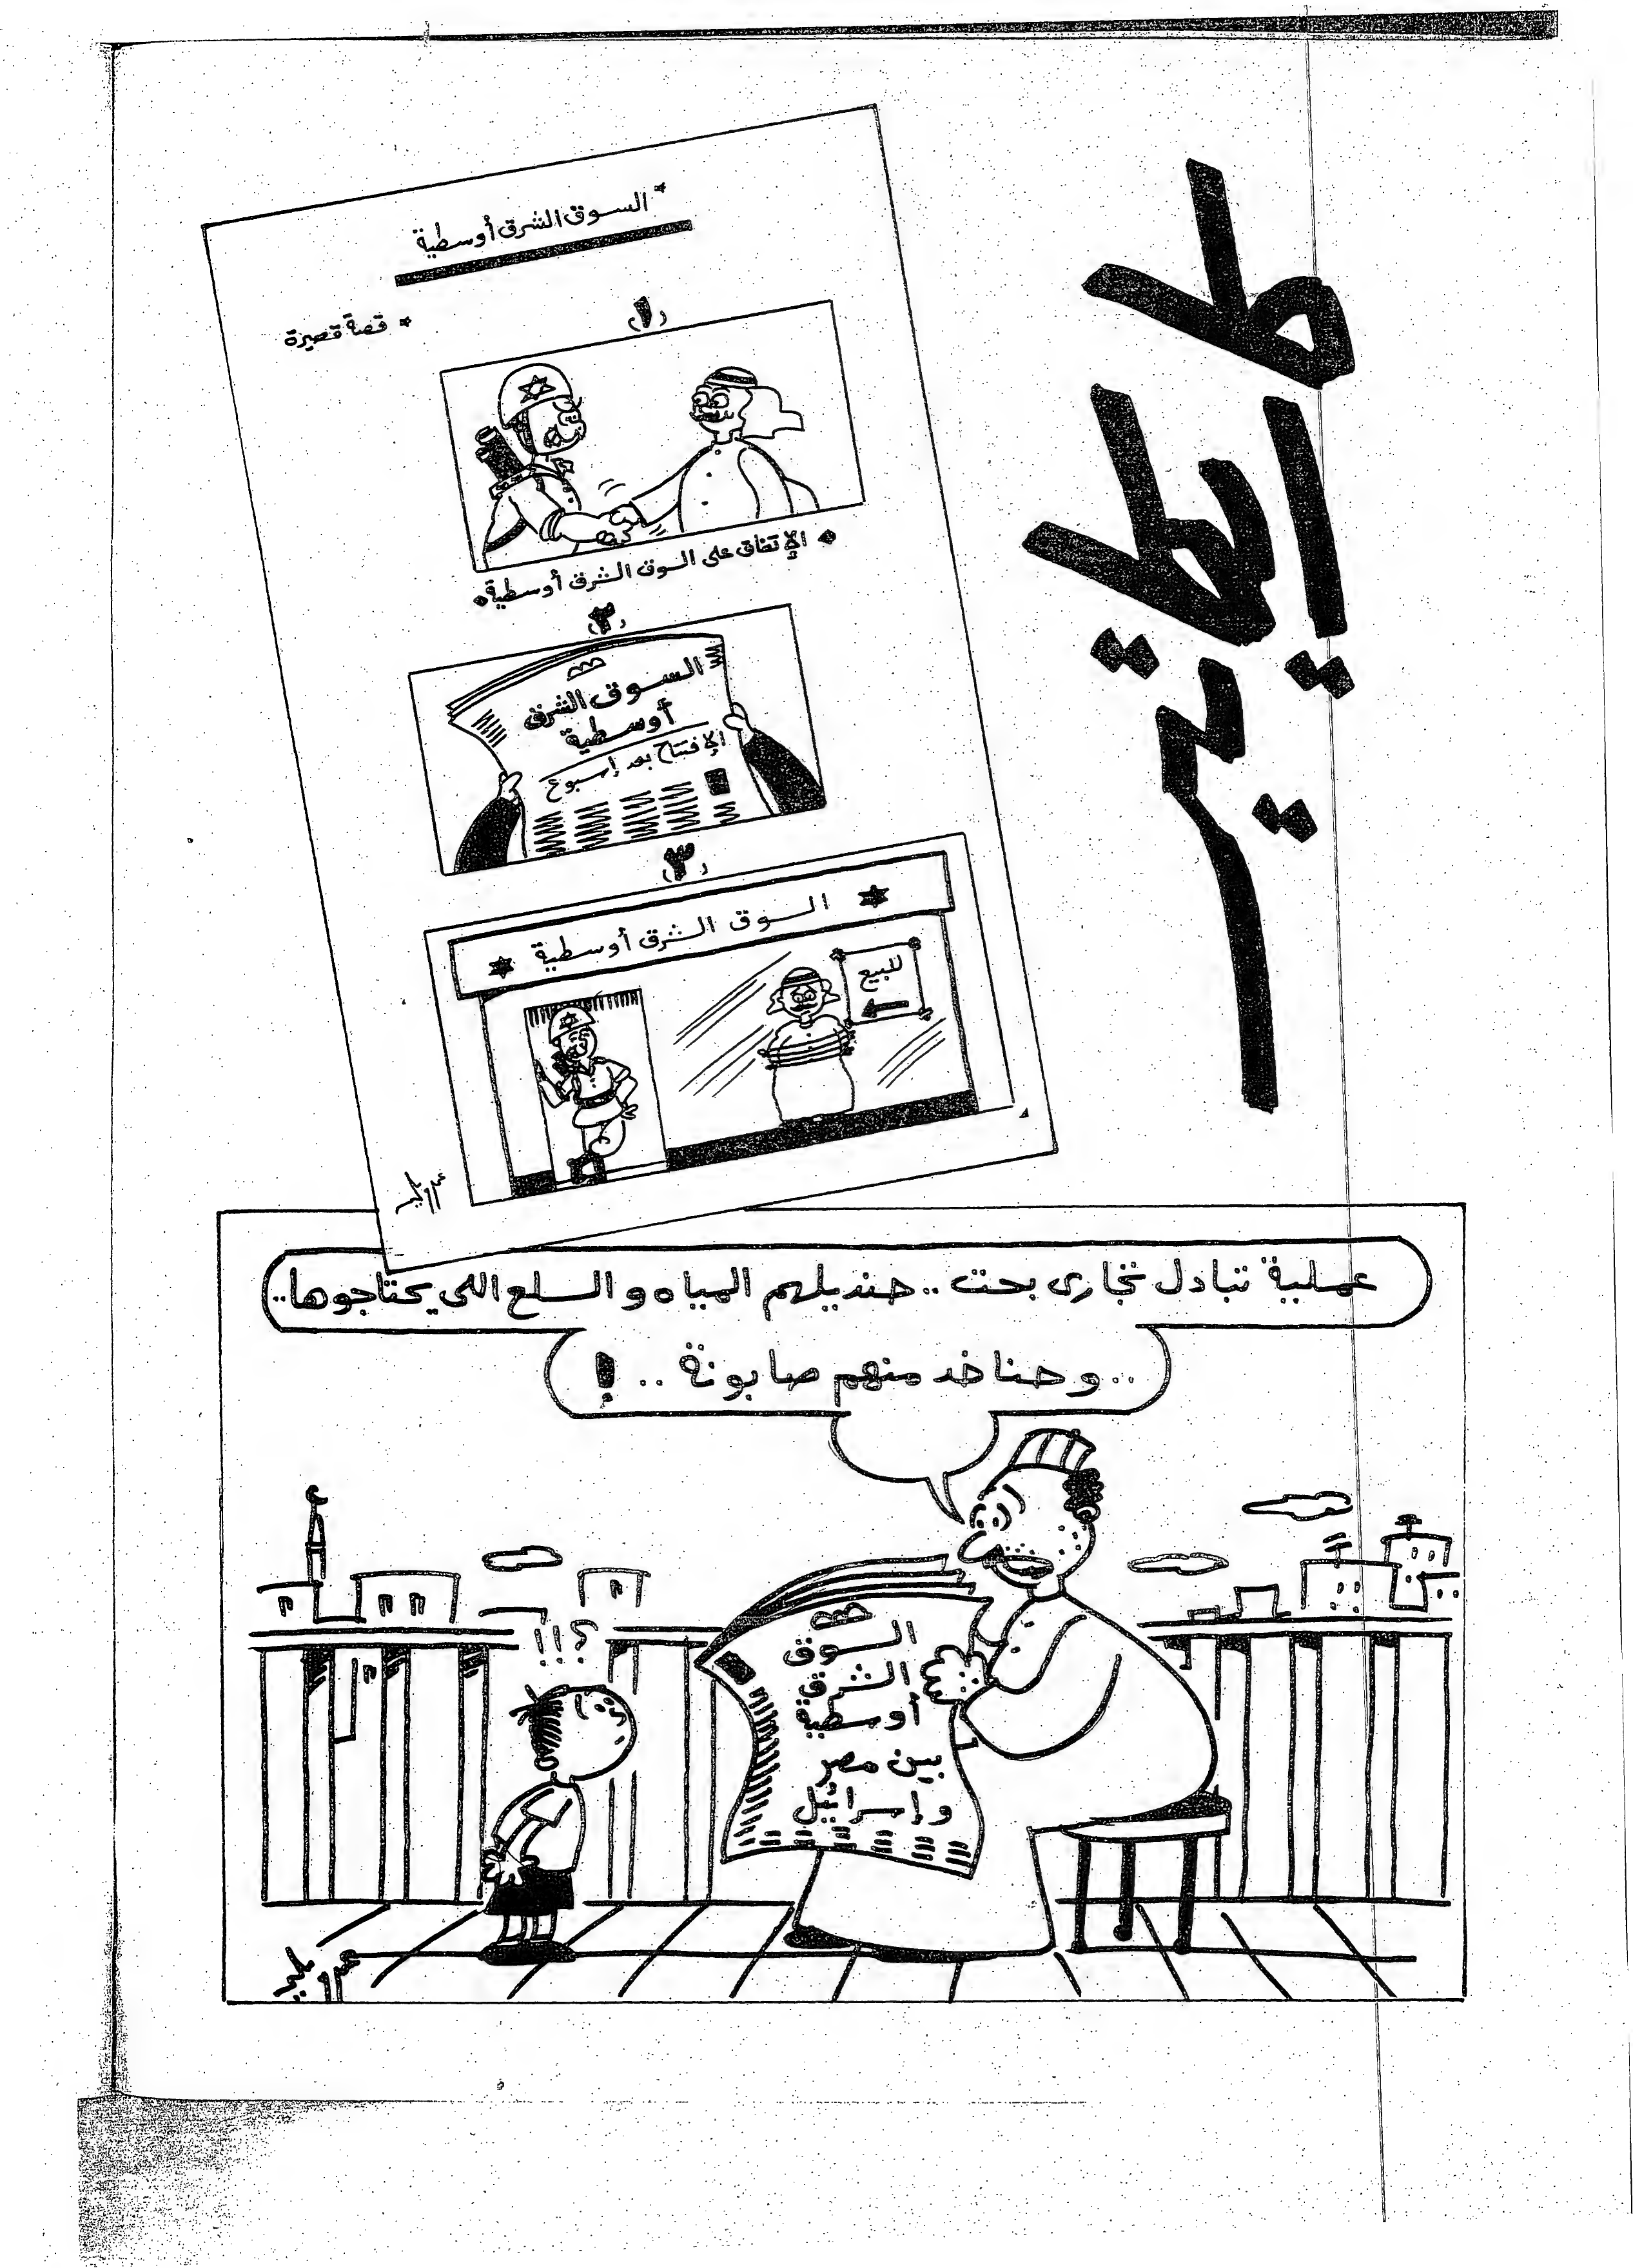 كاريكاتير
* السوق الشرق أوسطية
* قصة قصيرة
(١)
* الإتفاق على السوق الشرق أوسطية *
(٢)
السوق الشرق
أوسطية
الإفتتاح بعد إسبوع
(٣)
السوق الشرق أوسطية
للبيع
عملية تبادل تجارى بحت .. حنديلهم المياه والسلع اللى يحتاجوها..
.. وحناخد منهم صابونة .. !
!!؟
السوق
الشرق
أوسطية
بين مصر
وإسرائيل